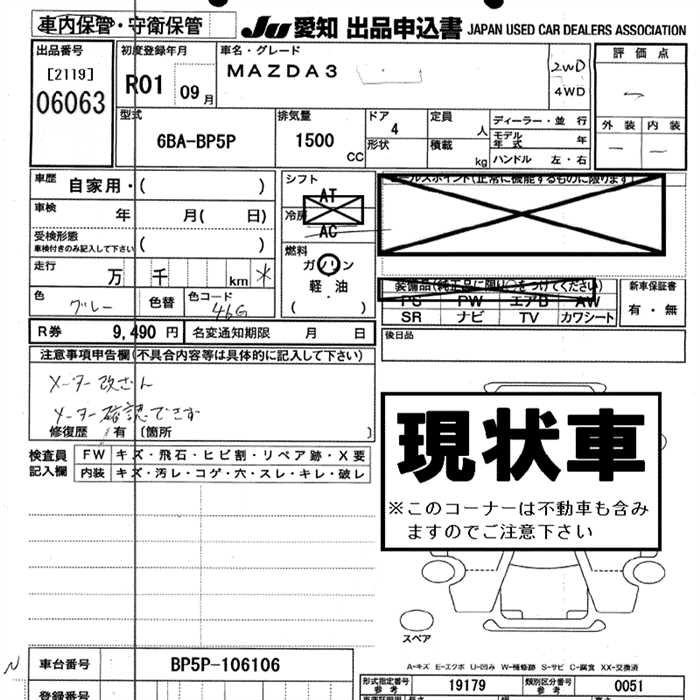 車内保管・守衛保管
JU 愛知 出品申込書 JAPAN USED CAR DEALERS ASSOCIATION
出品番号
[2119]
06063
初度登録年月
R01 09 月
車名・グレード
MAZDA3
2WD
4WD
評価点
外装 内装
型式
6BA-BP5P
排気量
1500 CC
ドア
4
形状
定員
人
積載
kg
ディーラー・並行
モデル年式 年
ハンドル 左・右
車歴 自家用・( )
車検 年 月( 日)
受検形態
車検付きのみ記入して下さい ( )
走行 万 千 km *
色 グレー 色替 色コード 46G
シフト
AT
冷房
AC
燃料
ガソリン
軽油
( )
セールスポイント(正常に機能するものに限ります)
装備品(純正品に限り○をつけてください)
PS PW エアB AW
SR ナビ TV カワシート
新車保証書
有・無
R券 9,490 円 名変通知期限 月 日
後日品
注意事項申告欄(不具合内容等は具体的に記入して下さい)
メーター改ざん
メーター確認できず
修復歴 有 〔箇所 〕
検査員記入欄
FW キズ・飛石・ヒビ割・リペア跡・X要
内装 キズ・汚レ・コゲ・穴・スレ・キレ・破レ
現状車
※このコーナーは不動車も含み
ますのでご注意下さい
スペア
A-キズ E-エクボ U-凹み W-補修跡 S-サビ C-腐食 XX-交換済
N 車台番号 BP5P-106106
形式指定番号 参考 19179 類別区分番号 参考 0051
登録番号